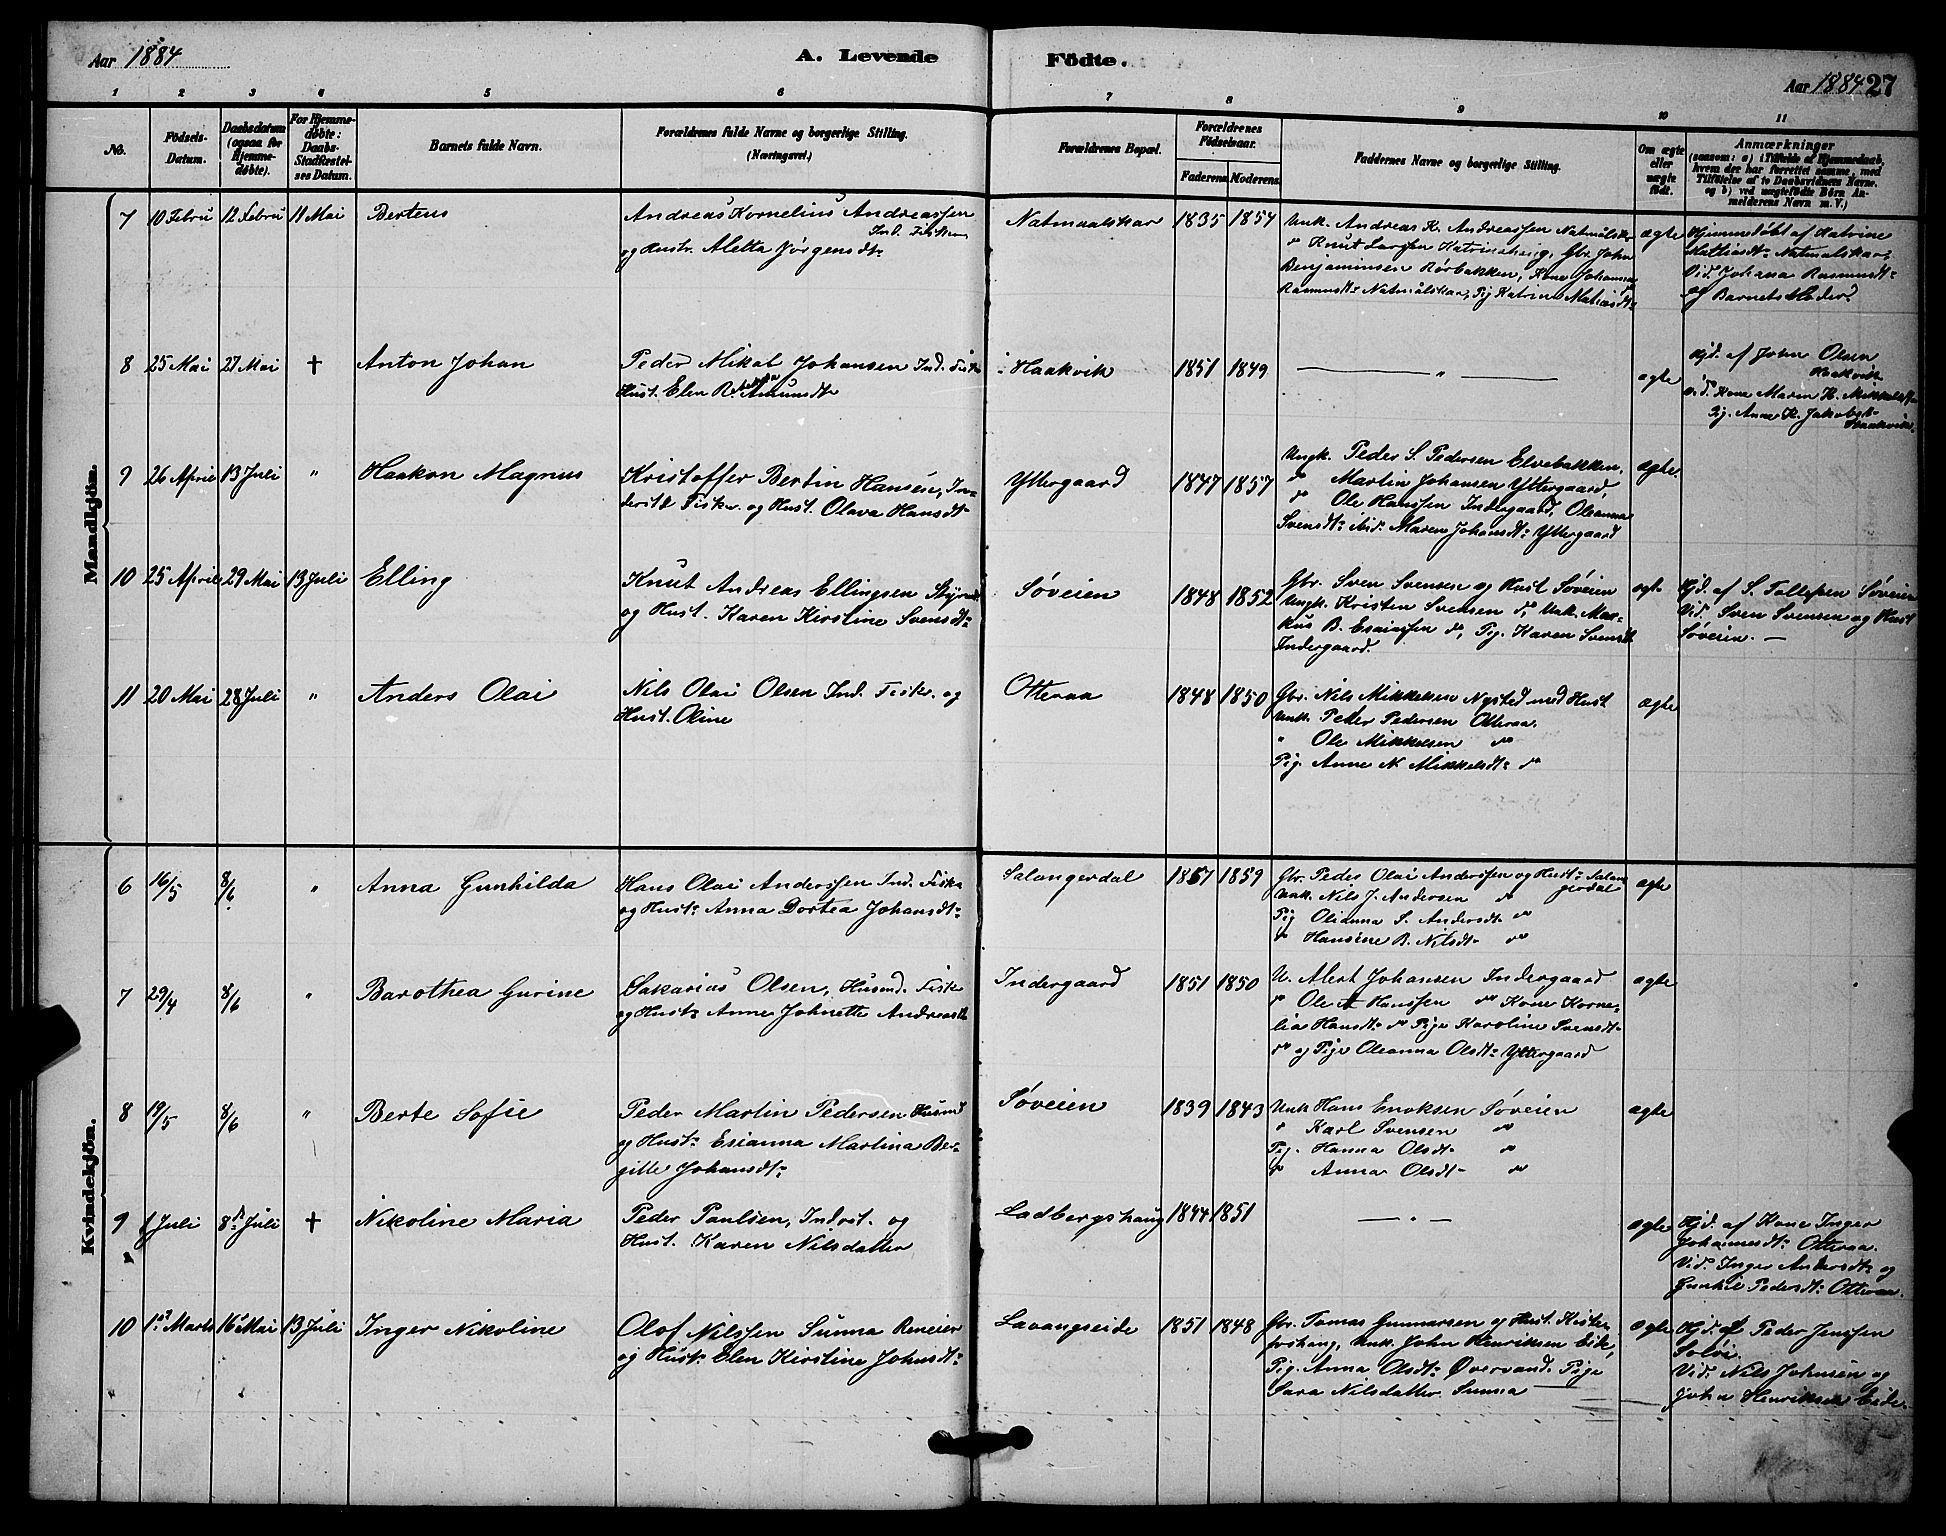 Aar 1884
A. Levende Födte.
Aar 1884 27
1 2 3 4 5 6 7 8 9 10 11
No.
Födsels-Datum.
Daabsdatum (ogsaa for Hjemme-døbte).
For Hjemme-døbte: Daabs-Stadfæstel-ses Datum.
Barnets fulde Navn.
Forældrenes fulde Navne og borgerlige Stilling.
(Næringsvei.)
Forældrenes Bopæl.
Forældrenes Födselsaar.
Faderens. Moderens.
Faddernes Navne og borgerlige Stilling.
Om ægte eller uægte födt.
Anmærkninger
(saasom: a) i Tilfælde af Hjemmedaab, hvem der har forrettet samme, med Tilföielse af to Daabsvidners Navne. og b) ved uægtefödte Börn Anmelderens Navn m. V.)
Mandkjön.
7 10 Febru 12 Febru 11 Mai Bertens
Andreas Kornelius Andreassen
Ind. Fisker
og Hustr. Aletta Jørgensdt.
Natmaalskar 1835 1854
Unk. Andreas K. Andreassen Natmålskar
do Knut Larssen Katrinehaug, Gbr. John
Benjaminsen Rørbakken, Kone Johanna
Rasmusdt. Natmålskar, Pig Katrine Matiasdt.
ægte
Hjemmedøbt af Katrine
Mathiasdt. Natmalskar,
Vid. Johana Rasmusdt.
og Barnets Moder
8 25 Mai 27 Mai † Anton Johan
Peder Mikal Johansen Ind. Fisk
Hust. Elen R. Amundt
Haakvik 1851 1849
— " —
ægte
Hjd. af John Olsen
Haakvik
Vid. Kone Maren K.
Pg. Anne K. Jakobsd.
Haakvik.
9 26 April 13 Juli " Haakon Magnus
Kristoffer Bertin Hansen, In-
derst & Fisker og Hust. Olava Hansdt.
Yttergaard 1847 1857
Ungk. Peder S. Pedersen Elvebakken,
do Martin Johansen Yttergaard,
do Ole Hanssen Indergaard, Oleanna
Svensdt. ibid. Maren Johansdt. Yttergaard
ægte.
10 25 April 29 Mai 13 Juli Elling
Knut Andreas Ellingsen
og Hust. Karen Kirstine Svensdt.
Søveien 1848 1852
Gbr. Sven Svensen og Hust Søveien
Ungk. Kristen Svensen do, Unk. Mar-
kus B. Esaiassen do, Pg. Karen Svensdt
Indergaard.
ægte
Hjd. af S. Tollefsen Søveien
Vid. Sven Svensen og Hust
Søveien. —
11 20 Mai 28 Juli " Anders Olai
Nils Olai Olsen Ind. Fisk. og
Hust. Oline
Otteraa 1848 1850
Gbr. Nils Mikkelsen Nysted med Hust
Unk. Peder Pedersen Otteraa.
" Ole Mikkelsen do
Pig. Anne N. Mikkelsdt. do
ægte
Kvindekjön.
6 16/5 8/6 " Anna Gunhilda
Hans Olai Anderssen Ind. Fisker
og Hust. Anna Dortea Johansdt.
Salangerdal 1857 1859
Gbr. Peder Olai Anderssen og Hust. Salan
gerdal
Unk. Nils J. Andersen do
Pig Olianna S. Andersdt. do
do Hansine B. Nilsdt. do
ægte
7 29/4 8/6 " Barothea Gurine
Sakarias Olsen, Husmd. Fisk
og Hust. Anne Johnette Andreasdt
Indergaard 1851 1850
U. Alert Johansen Indergaard
do Ole A Hanssen do Kone Korne-
lia Hansdt. do Pige Karoline Svensdt.
do og Pige Oleanna Olsdt. Yttergaard
ægte
8 19/5 8/6 " Berte Sofie
Peder Martin Pedersen Husmd
og Hust. Esianna Martina Ber-
gitte Johansdt.
Søveien 1839 1843
Unk Hans Enoksen Søveien
" Karl Svensen do
Pig. Hanna Olsdt. do
do Anna Olsdt. do
ægte
9 1 Juli 8de Juli † Nikoline Maria
Peder Paulsen, Indrst. og
Hust. Karen Nilsdatter
Ladbergshaug 1844 1851
— " —
ægte
Hjd. af Kone Inger
Johannesdt. Otteraa.
Vid. Inger Andersdt. og
Gunhil Pedersdt. Otteraa.
10 1ste Marts 16 Mai 13 Juli Inger Nikoline
Olof Nilssen Sunna Reneier
og Hust. Elen Kirstine Johnsdt.
Lavangseide 1851 1848
Gbr. Tomas Gunnarsen og Hust.
Unk. John Henriksen Eide,
Pig. Anna Olsdt. Øvervand. Pige
Sara Nilsdatter Sunna —
ægte
Hjd. af Peder Jenssen
Soløi.
Vid. Nils Johnsen og
John Henriksen Eide.